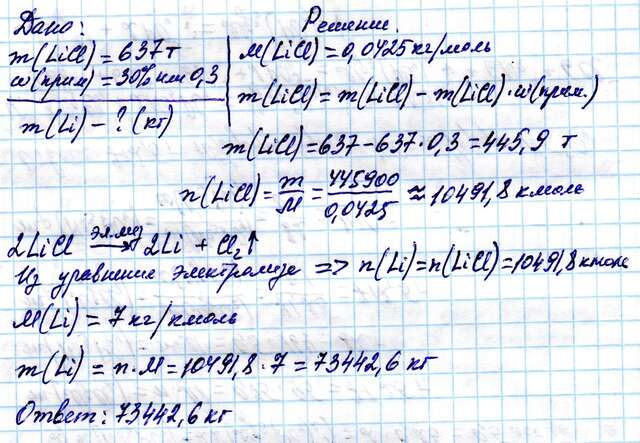 Дано:
m(LiCl) = 637 т
ω(прим) = 30% или 0,3
m(Li) - ? (кг)
Решение.
M(LiCl) = 0,0425 кг/моль
m(LiCl) = m(LiCl) - m(LiCl) · ω(прим.)
m(LiCl) = 637 - 637 · 0,3 = 445,9 т
n(LiCl) = m/M = 445900/0,0425 ≈ 10491,8 кмоль
2LiCl эл.лиз → 2Li + Cl₂↑
Из уравнение электролиза => n(Li) = n(LiCl) = 10491,8 кмоль
M(Li) = 7 кг/кмоль
m(Li) = n · M = 10491,8 · 7 = 73442,6 кг
Ответ: 73442,6 кг